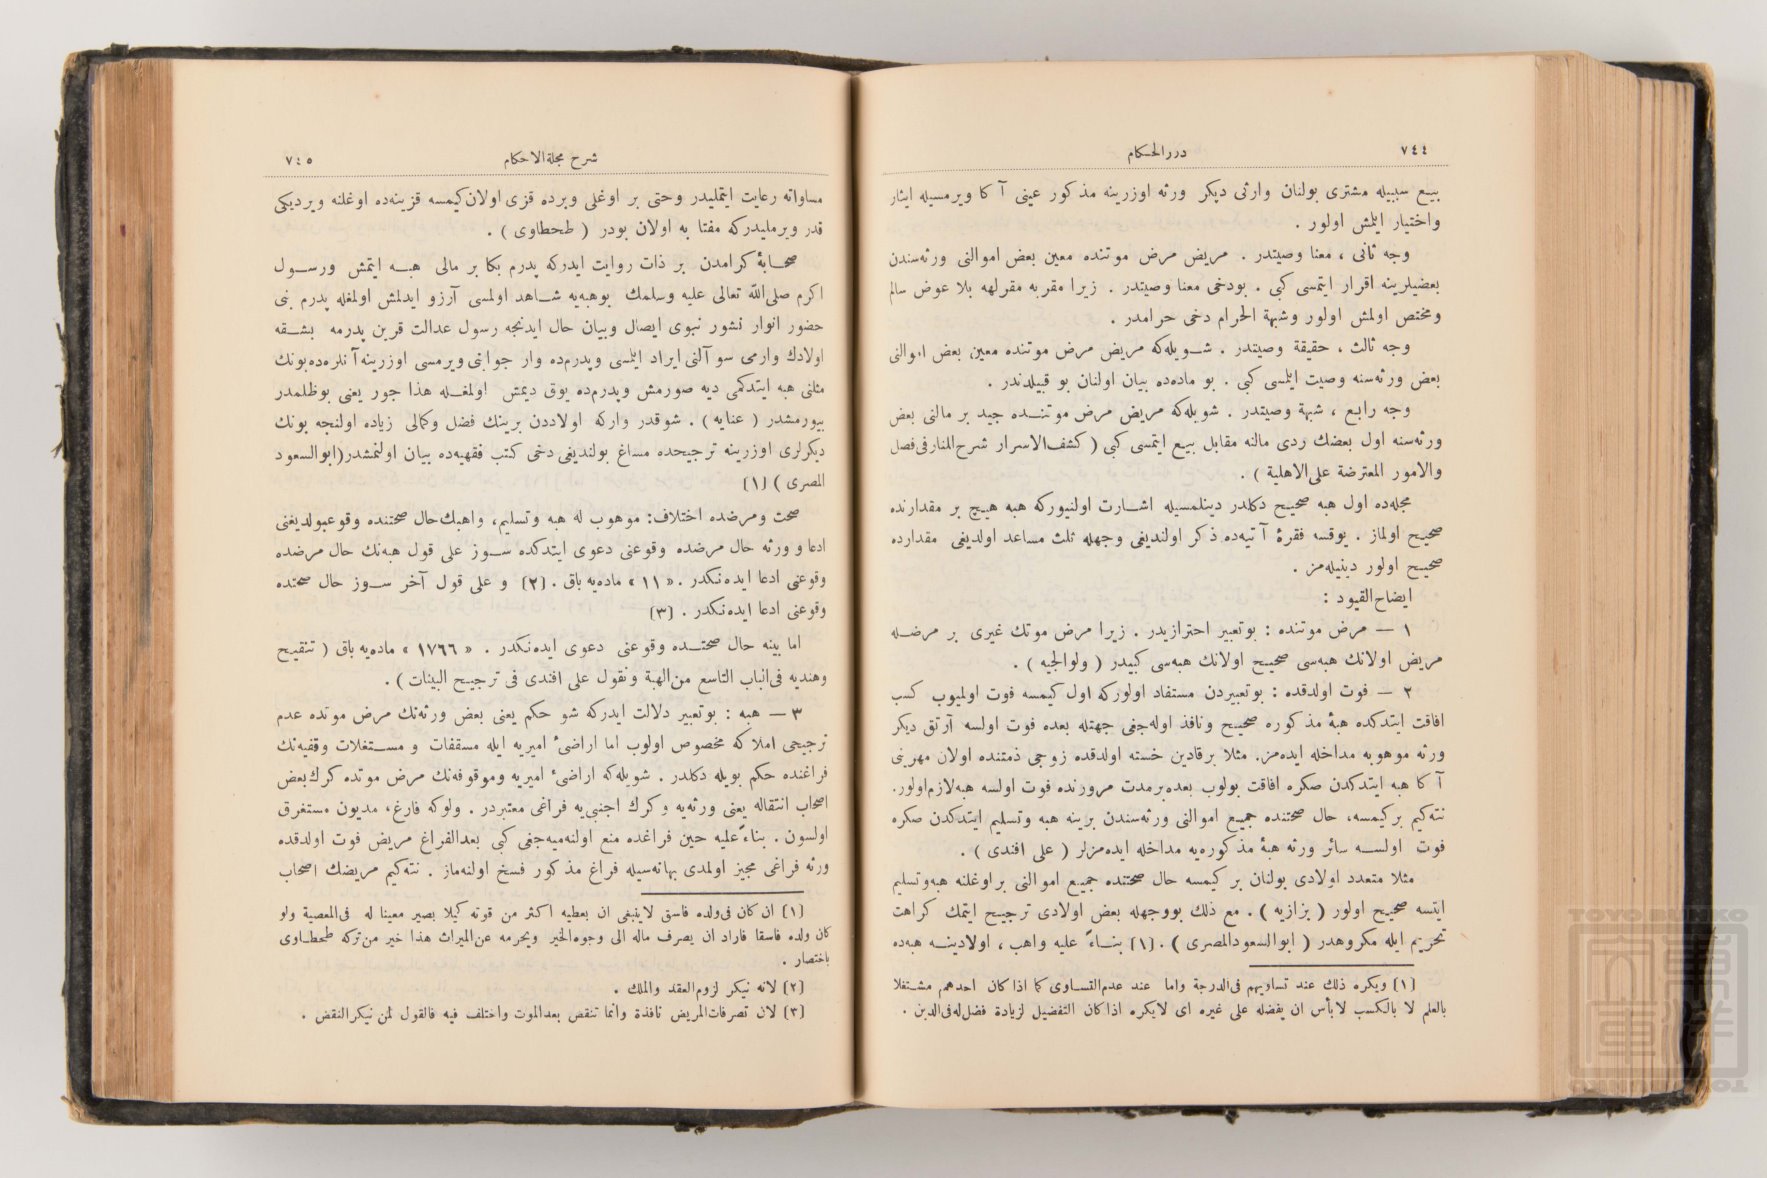 ٧٤٤
دررالحكام
بيع سببيله مشترى بولنان وارثى ديكر ورثه اوزرينه مذكور عينى آ كا ويرمسيله ايثار
واختيار ايلمش اولور .
وجه ثانى ، معنا وصيتدر . مريض مرض موتنده معين بعض اموالنى ورثه‌سندن
بعضيلرينه اقرار ايتمسى كبى . بودخى معنا وصيتدر . زيرا مقربه مقرلهه بلا عوض سالم
ومختص اولمش اولور وشبهة الحرام دخى حرامدر .
وجه ثالث ، حقيقة وصيتدر . شويله‌كه مريض مرض موتنده معين بعض اموالنى
بعض ورثه‌سنه وصيت ايلمسى كبى . بو ماده‌ده بيان اولنان بو قبيلدندر .
وجه رابع ، شبهة وصيتدر . شويله‌كه مريض مرض موتنده جيد بر مالنى بعض
ورثه‌سنه اول بعضك ردى مالنه مقابل بيع ايتمسى كبى ( كشف‌الاسرار شرح‌المنار فى‌فصل
والامور المعترضة على‌الاهلية ) .
مجله‌ده اول هبه صحيح دكلدر دينلمسيله اشارت اولنيوركه هبه هيچ بر مقدارنده
صحيح اولماز . يوقسه فقرۀ آتيه‌ده ذكر اولنديغى وجهله ثلث مساعد اولديغى مقدارده
صحيح اولور دينيله‌مز .
ايضاح‌القيود :
١ — مرض موتنده : بوتعبير احترازيدر . زيرا مرض موتك غيرى بر مرضله
مريض اولانك هبه‌سى صحيح اولانك هبه‌سى كبيدر ( ولوالجيه ) .
٢ — فوت اولدقده : بوتعبيردن مستفاد اولوركه اول كيمسه فوت اولميوب كسب
افاقت ايتدكده هبۀ مذكوره صحيح ونافذ اوله‌جغى جهتله بعده فوت اولسه آرتق ديكر
ورثه موهوبه مداخله ايده‌مز. مثلا برقادين خسته اولدقده زوجى ذمتنده اولان مهرينى
آ كا هبه ايتدكدن صكره افاقت بولوب بعده‌برمدت مرورنده فوت اولسه هبه‌لازم‌اولور.
نته‌كيم بركيمسه، حال صحتنده جميع اموالنى ورثه‌سندن برينه هبه وتسليم ايتدكدن صكره
فوت اولسه سائر ورثه هبۀ مذكوره‌يه مداخله ايده‌مزلر ( على افندى ) .
مثلا متعدد اولادى بولنان بر كيمسه حال صحتنده جميع اموالنى براوغلنه هبه‌وتسليم
ايتسه صحيح اولور ( بزازيه ) . مع ذلك بووجهله بعض اولادى ترجيح ايتمك كراهت
تحريم ايله مكروهدر ( ابوالسعودالمصرى ) . [١] بناءً عليه واهب ، اولادينه هبه‌ده
[١] ويكره ذلك عند تساويهم فى‌الدرجة واما عند عدم‌التساوى كما اذا كان احدهم مشتغلا
بالعلم لا بالكسب لا بأس ان يفضله على غيره اى لايكره اذا كان التفضيل لزيادة فضل‌له‌فى‌الدين .
شرح مجلةالاحكام
٧٤٥
مساواته رعايت ايتمليدر وحتى بر اوغلى وبرده قزى اولان‌كيمسه قزينه‌ده اوغلنه ويرديكى
قدر ويرمليدركه مفتا به اولان بودر ( طحطاوى ) .
صحابۀ كرامدن بر ذات روايت ايدركه پدرم بكا بر مالى هبه ايتمش ورسول
اكرم صلى‌الله تعالى عليه وسلمك بوهبه‌يه شاهد اولمسى آرزو ايدلمش اولمغله پدرم بنى
حضور انوار نشور نبوى ايصال وبيان حال ايدنجه رسول عدالت قرين پدرمه بشقه
اولادك وارمى سوآلنى ايراد ايلمسى وپدرم‌ده وار جوابنى ويرمسى اوزرينه آنلره‌ده‌بونك
مثلنى هبه ايتدكمى ديه صورمش وپدرم‌ده يوق ديمش اولمغله هذا جور يعنى بوظلمدر
بيورمشدر ( عنايه ) . شوقدر واركه اولاددن برينك فضل وكمالى زياده اولنجه بونك
ديكرلرى اوزرينه ترجيحده مساغ بولنديغى دخى كتب فقهيه‌ده بيان اولنمشدر(ابوالسعود
المصرى ) [١]
صحت ومرضده اختلاف: موهوب له هبه وتسليم، واهبك‌حال صحتنده وقوعبولديغنى
ادعا و ورثه حال مرضده وقوعنى دعوى ايتدكده سوز على قول هبه‌نك حال مرضده
وقوعنى ادعا ايده‌نكدر . « ١١ » ماده‌يه باق . [٢] و على قول آخر سوز حال صحتده
وقوعنى ادعا ايده‌نكدر . [٣]
اما بينه حال صحتده وقوعنى دعوى ايده‌نكدر . « ١٧٦٦ » ماده‌يه باق ( تنقيح
وهنديه فى‌الباب التاسع من‌الهبة ونقول على افندى فى ترجيح البينات ) .
٣ — هبه : بوتعبير دلالت ايدركه شو حكم يعنى بعض ورثه‌نك مرض موتده عدم
ترجيحى املاكه مخصوص اولوب اما اراضئ اميريه ايله مسقفات و مستغلات وقفيه‌نك
فراغنده حكم بويله دكلدر . شويله‌كه اراضئ اميريه وموقوفه‌نك مرض موتده كرك‌بعض
اصحاب انتقاله يعنى ورثه‌يه وكرك اجنبى‌يه فراغى معتبردر . ولوكه فارغ، مديون مستغرق
اولسون . بناءً‌عليه حين فراغده منع اولنه‌ميه‌جغى كبى بعدالفراغ مريض فوت اولدقده
ورثه فراغى مجيز اولمدى بهانه‌سيله فراغ مذكور فسخ اولنه‌ماز . نته‌كيم مريضك اصحاب
[١] ان كان فى‌ولده فاسق لاينبغى ان يعطيه اكثر من قوته كيلا يصير معينا له فى‌المعصية ولو
كان ولده فاسقا فاراد ان يصرف ماله الى وجوه‌الخير ويحرمه عن‌الميراث هذا خير من‌تركه طحطاوى
باختصار .
[٢] لانه نيكر لزوم‌العقد والملك .
[٣] لان تصرفات‌المريض نافذة وانما تنقض بعدالموت واختلف فيه فالقول لمن نيكرالنقض .
TOYO BUNKO